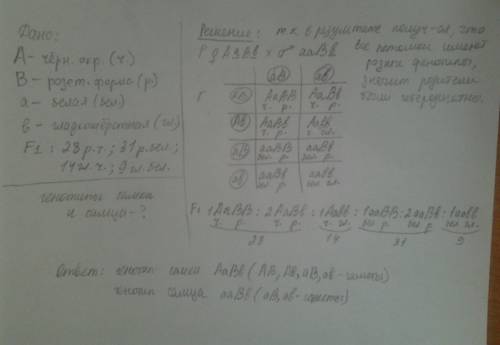 Дано:
А - чёрн. окр. (ч.)
В - розет. форма (р)
а - белая (бел)
в - гладкошёрстная (гл.)
F1 : 28 р.ч.; 31 р.бел.;
14 гл.ч.; 9 гл.бел.
генотипы самки
и самца - ?
Решение: т.к. в результате получ-ся, что
все потомки имеют
разные фенотипы,
значит родители
были гетерозиготны.
Р ♀ АаВв × ♂ ааВв
аВ ав
АВ АаВВ АаВв
ч. р. ч. р.
Ав АаВв Аавв
ч. р. ч. гл.
аВ ааВВ ааВв
бел. р. бел. р.
ав ааВв аавв
бел. р. бел. гл.
F1 1АаВВ : 2АаВв : 1Аавв : 1ааВВ : 2ааВв : 1аавв
28 14 31 9
Ответ: генотип самки АаВв (АВ, Ав, аВ, ав - гаметы)
генотип самца ааВв (аВ, ав - гаметы)